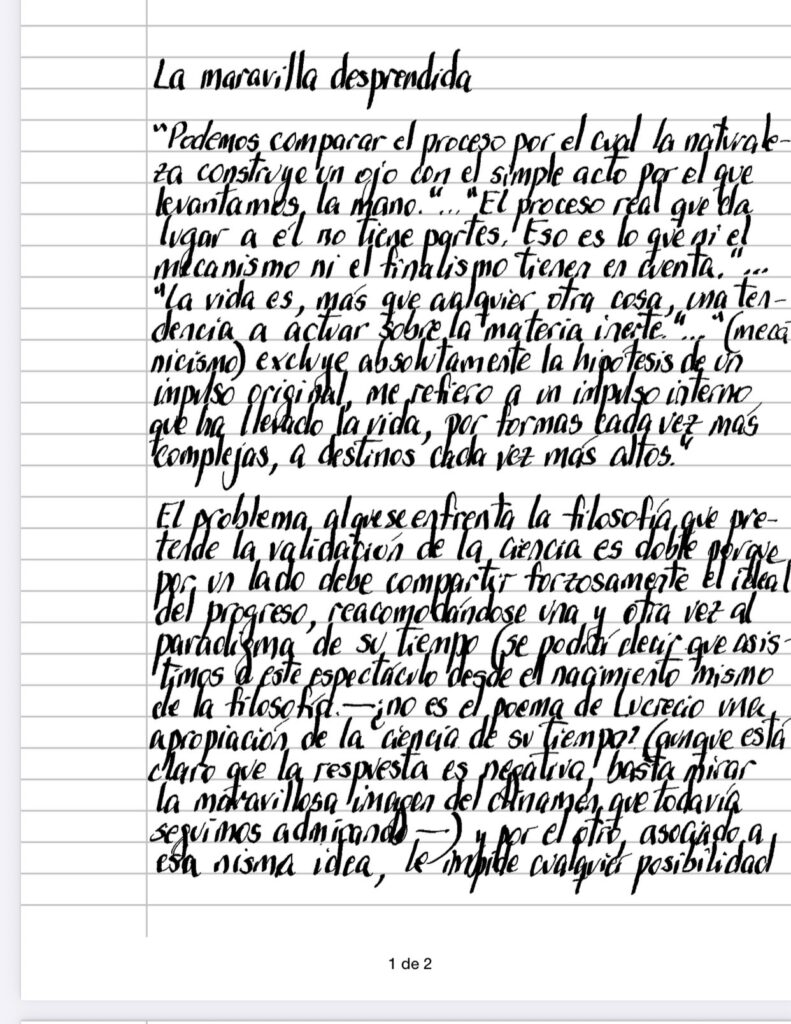 La maravilla desprendida
"Podemos comparar el proceso por el cual la naturale-
za construye un ojo con el simple acto por el que
levantamos la mano."..."El proceso real que da
lugar a él no tiene partes. Eso es lo que ni el
mecanismo ni el finalismo tienen en cuenta."...
"La vida es, más que cualquier otra cosa, una ten-
dencia a actuar sobre la materia inerte."..."(meca
nicismo) excluye absolutamente la hipótesis de un
impulso original, me refiero a un impulso interno
que ha llevado la vida, por formas cada vez más
complejas, a destinos cada vez más altos."
El problema al que se enfrenta la filosofía que pre-
tende la validación de la ciencia es doble porque
por un lado debe compartir forzosamente el ideal
del progreso, reacomodándose una y otra vez al
paradigma de su tiempo (se podría decir que asis-
timos a este espectáculo desde el nacimiento mismo
de la filosofía.—¿no es el poema de Lucrecio una
apropiación de la ciencia de su tiempo? (aunque está
claro que la respuesta es negativa, basta mirar
la maravillosa imagen del clinamen que todavía
seguimos admirando —) y por el otro, asociado a
esa misma idea, le impide cualquier posibilidad
1 de 2